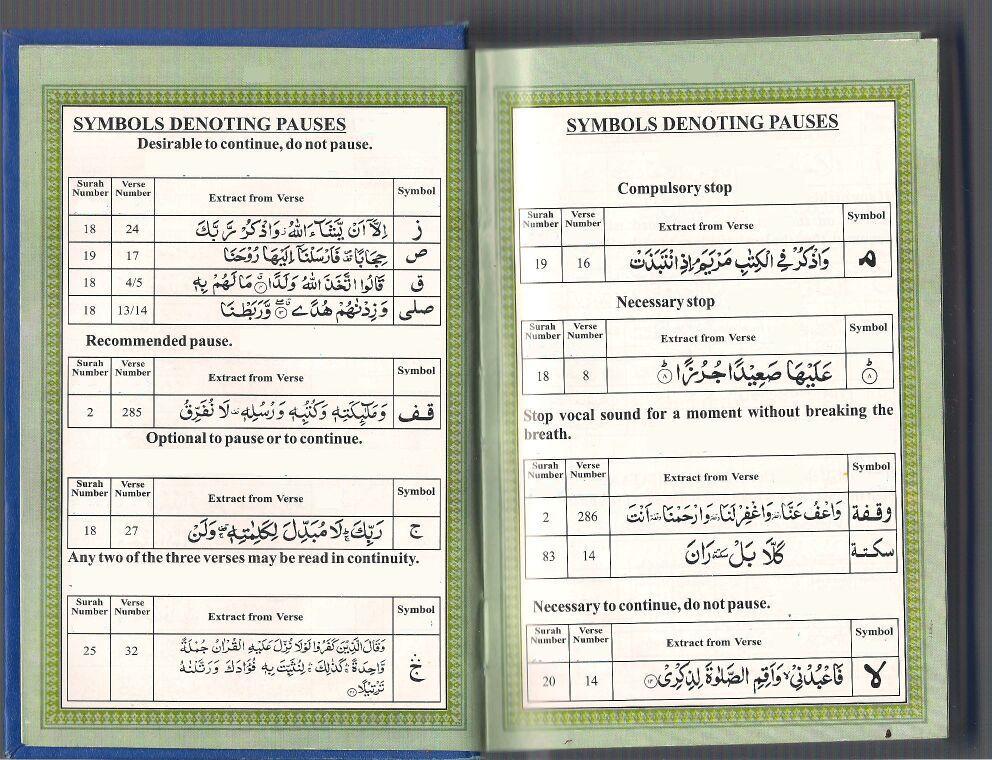 SYMBOLS DENOTING PAUSES
Desirable to continue, do not pause.
Surah Number Verse Number Extract from Verse Symbol
18 24 اِلَّاۤ اَنۡ يَّشَآءَ اللّٰهُ ز وَاذۡكُرۡ رَّبَّكَ ز
19 17 حِجَابًا ص فَاَرۡسَلۡنَاۤ اِلَيۡهَا رُوۡحَنَا ص
18 4/5 قَالُوا اتَّخَذَ اللّٰهُ وَلَدًا ق مَا لَهُمۡ بِهٖ ق
18 13/14 وَزِدۡنٰهُمۡ هُدًى ۱۳ وَّرَبَطۡنَا صلى
Recommended pause.
Surah Number Verse Number Extract from Verse Symbol
2 285 وَمَلٰٓئِكَتِهٖ وَكُتُبِهٖ وَرُسُلِهٖ قف لَا نُفَرِّقُ قف
Optional to pause or to continue.
Surah Number Verse Number Extract from Verse Symbol
18 27 رَبِّكَ لَا مُبَدِّلَ لِكَلِمٰتِهٖ وَلَنۡ ج
Any two of the three verses may be read in continuity.
Surah Number Verse Number Extract from Verse Symbol
25 32 وَقَالَ الَّذِيۡنَ كَفَرُوۡا لَوۡلَا نُزِّلَ عَلَيۡهِ الۡقُرۡاٰنُ جُمۡلَةً
وَّاحِدَةً كَذٰلِكَ لِنُثَبِّتَ بِهٖ فُؤَادَكَ وَرَتَّلۡنٰهُ
تَرۡتِيۡلًا ۳۲
SYMBOLS DENOTING PAUSES
Compulsory stop
Surah Number Verse Number Extract from Verse Symbol
19 16 وَاذۡكُرۡ فِى الۡكِتٰبِ مَرۡيَمَ م اِذِ انْتَبَذَتۡ م
Necessary stop
Surah Number Verse Number Extract from Verse Symbol
18 8 عَلَيۡهَا صَعِيۡدًا جُرُزًا ط ۸ ط ۸
Stop vocal sound for a moment without breaking the
breath.
Surah Number Verse Number Extract from Verse Symbol
2 286 وَاعۡفُ عَنَّا وقفة وَاغۡفِرۡ لَنَا وقفة وَارۡحَمۡنَا وقفة اَنۡتَ وقفة
83 14 كَلَّا بَلۡ سكتة رَانَ سكتة
Necessary to continue, do not pause.
Surah Number Verse Number Extract from Verse Symbol
20 14 فَاعۡبُدۡنِىۡ لا وَاَقِمِ الصَّلٰوةَ لِذِكۡرِىۡ ۱۴ لا